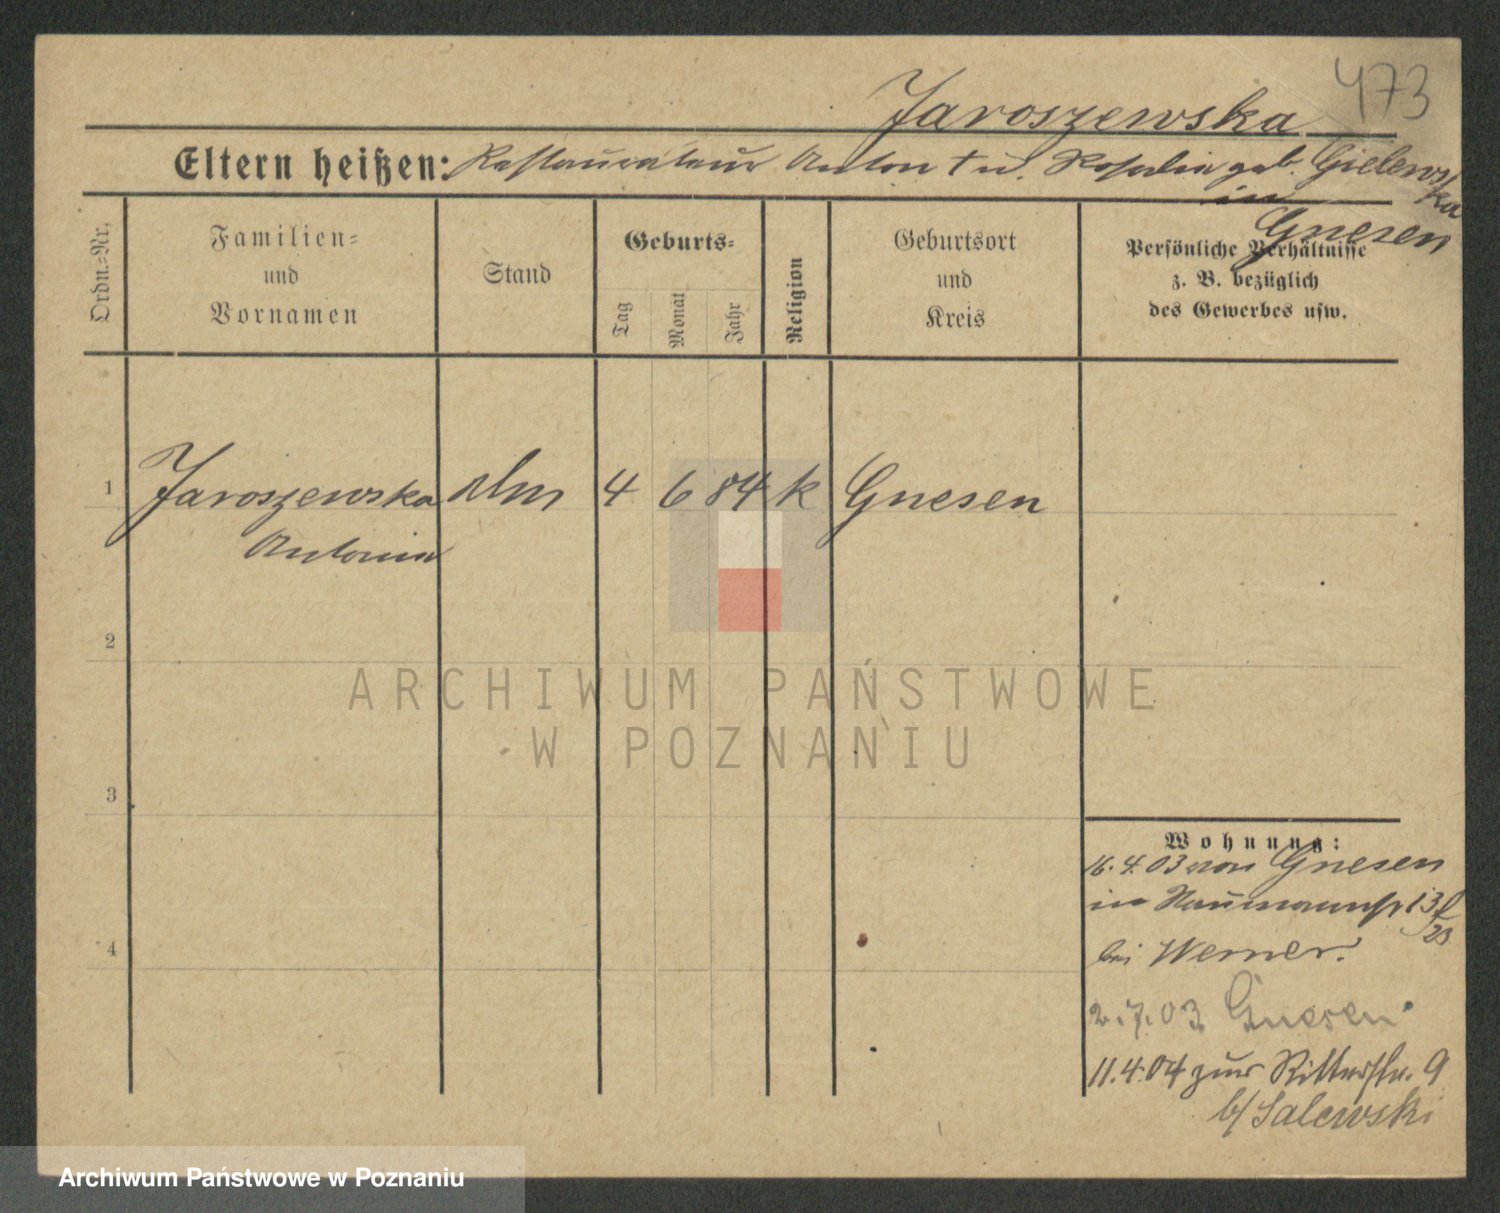 473
Jaroszewska
Eltern heißen: Restaurateur Anton † u. Rosalia geb. Gielewska
in Gnesen
Ordn.-Nr.
Familien- und Vornamen
Stand
Geburts-
Tag
Monat
Jahr
Religion
Geburtsort und Kreis
Persönliche Verhältnisse
z. B. bezüglich
des Gewerbes usw.
1 Jaroszewska 4 6 84 k Gnesen
Antonia
2
3
4
ARCHIWUM PAŃSTWOWE
W POZNANIU
Wohnung:
16.4.03 von Gnesen
in Naumannstr 13
bei Werner.
2.7.03 Gnesen
11.4.04 zur Ritterstr. 9
b/ Salewski
Archiwum Państwowe w Poznaniu